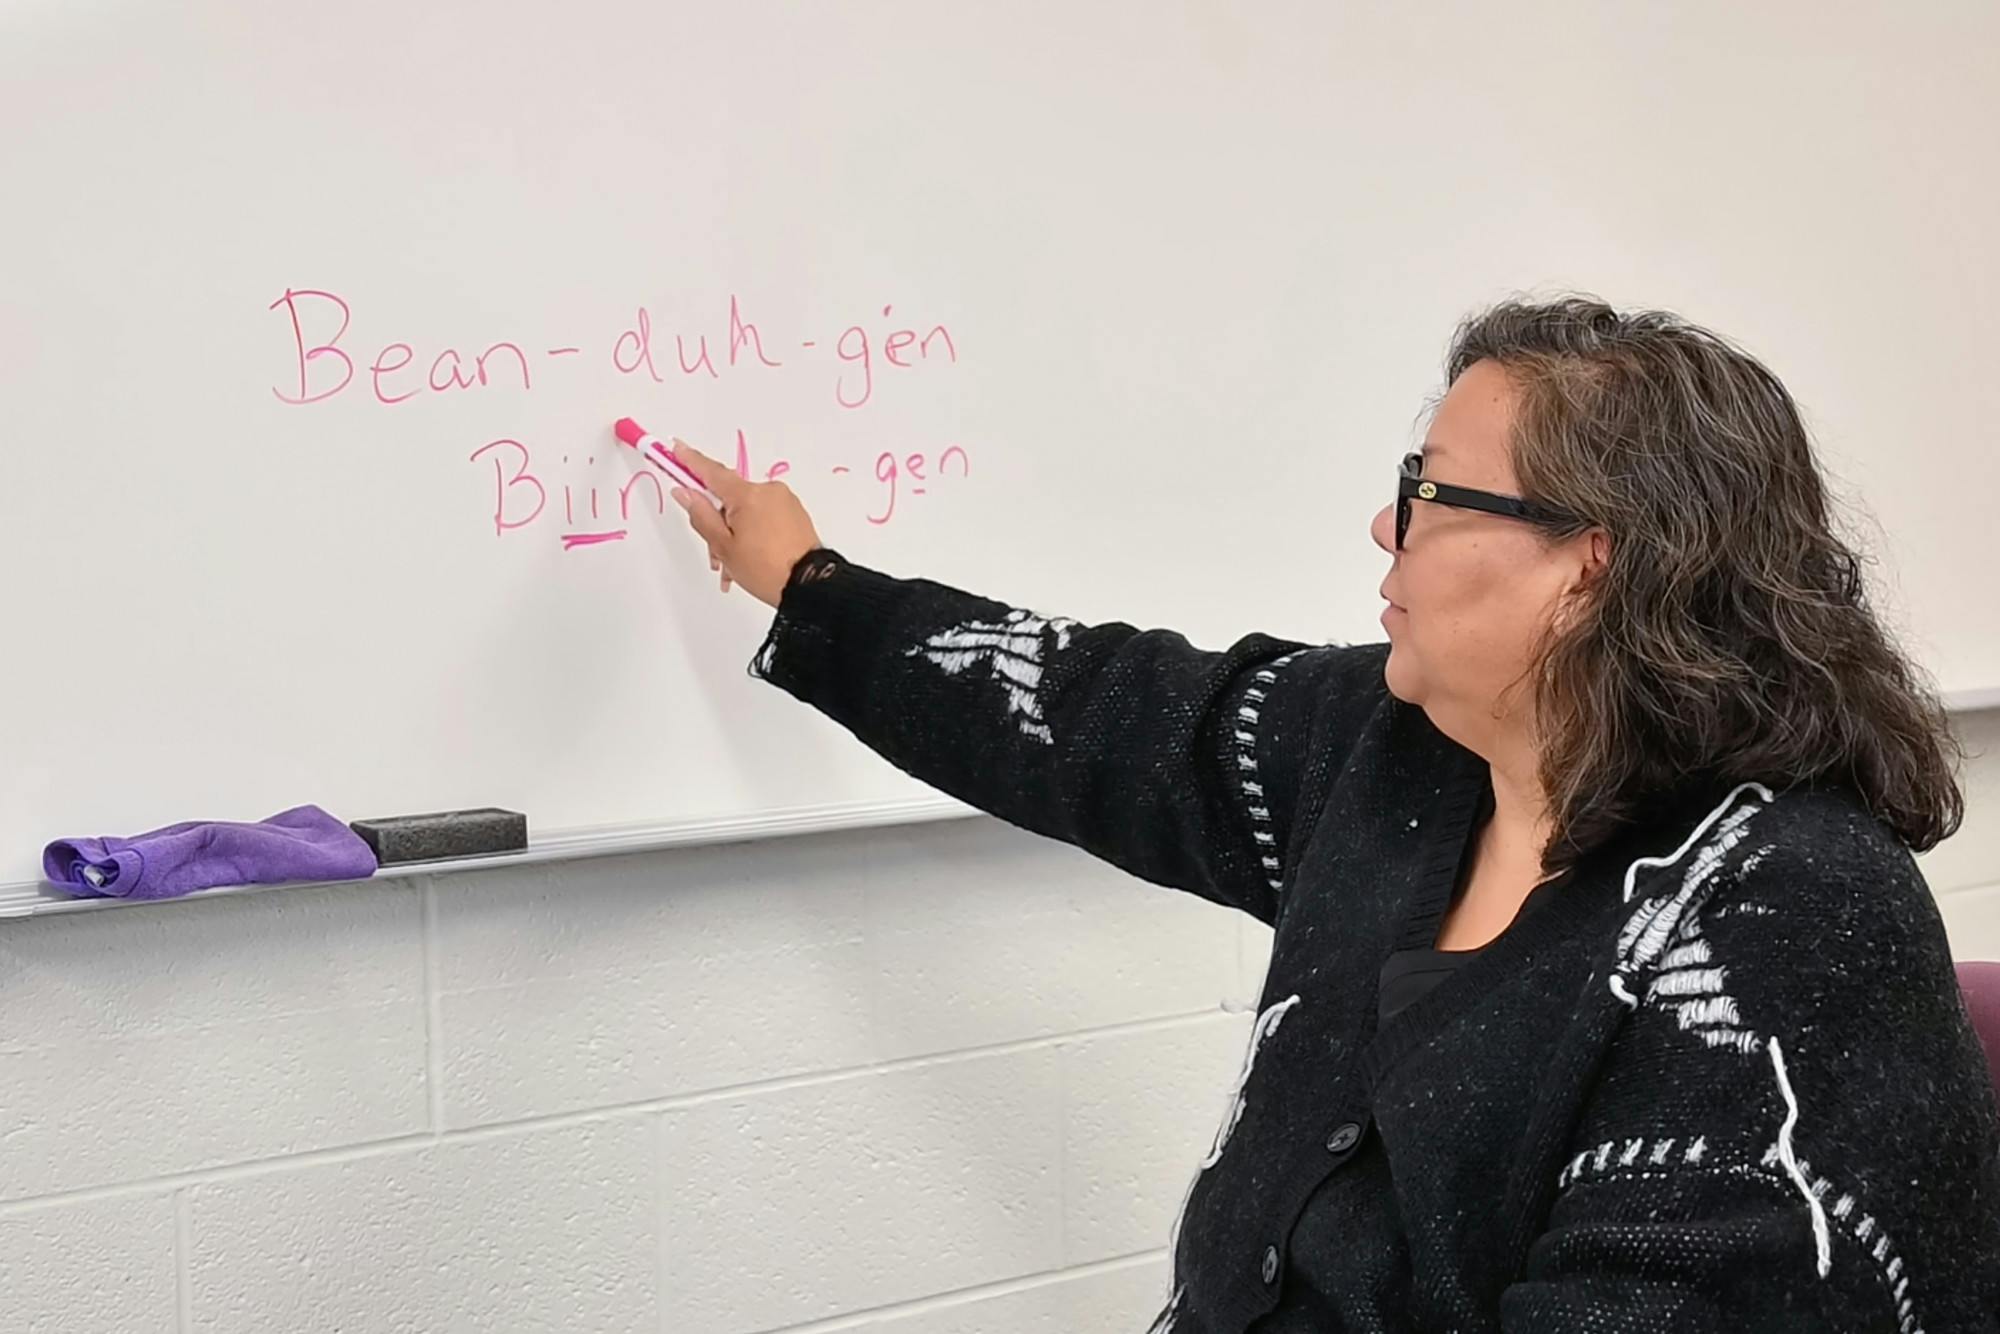 Bean-duh-gén
Biin de-gen